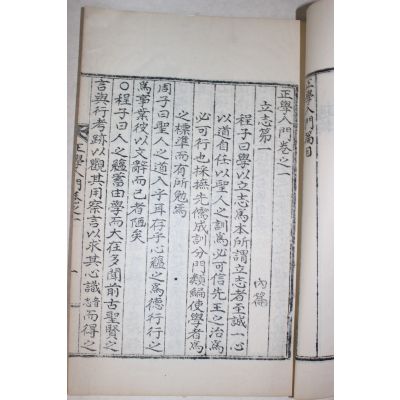 正學入門篇目
正學入門卷之一
內篇
立志第一
程子曰學以立志爲本所謂立志者至誠一心
以道自任以聖人之訓爲必可信先王之治爲
必可行也採摭先儒成訓分門類編使學者爲
之標準而有所勉焉
周子曰聖人之道入乎耳存乎心蘊之爲德行行之
爲事業彼以文辭而已者陋矣
○程子曰人之蘊蓄由學而大在多聞前古聖賢之
言與行考跡以觀其用察言以求其心識而得之
正學入門卷之一
一